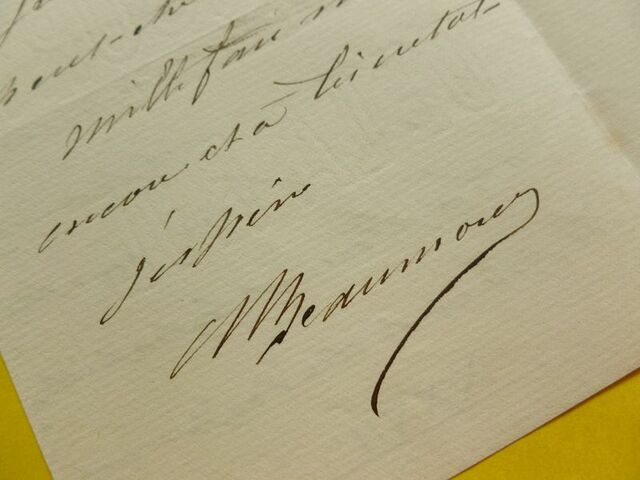 peut-être
mille fois m
encore et à bientot
j'espère
ABeaumont